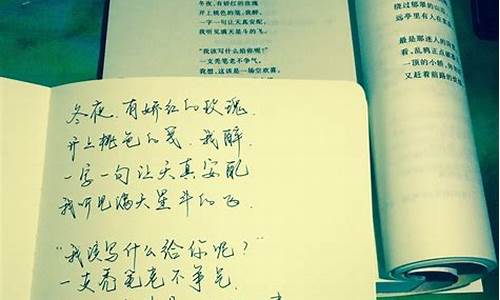 冬夜，有娇红的玫瑰
开上桃色的笺，我醉，
一字一句让天真安配，
我听见满天星斗的飞。
“我该写什么给你呢？”
一支秃笔老不争气，
我想，这该是一场空欢喜。
绕过郁郁的山
里有人在
最是那迷人的
看，乱鸦正点破
一顶的小轿，
又赶着前路的
冬夜，有娇红的玫瑰，
开上桃色的笺，我醉，
一字一句让天真安配
我听见满天星斗的飞．
“我该写什么给你呢？”
一支秃笔老不争气，